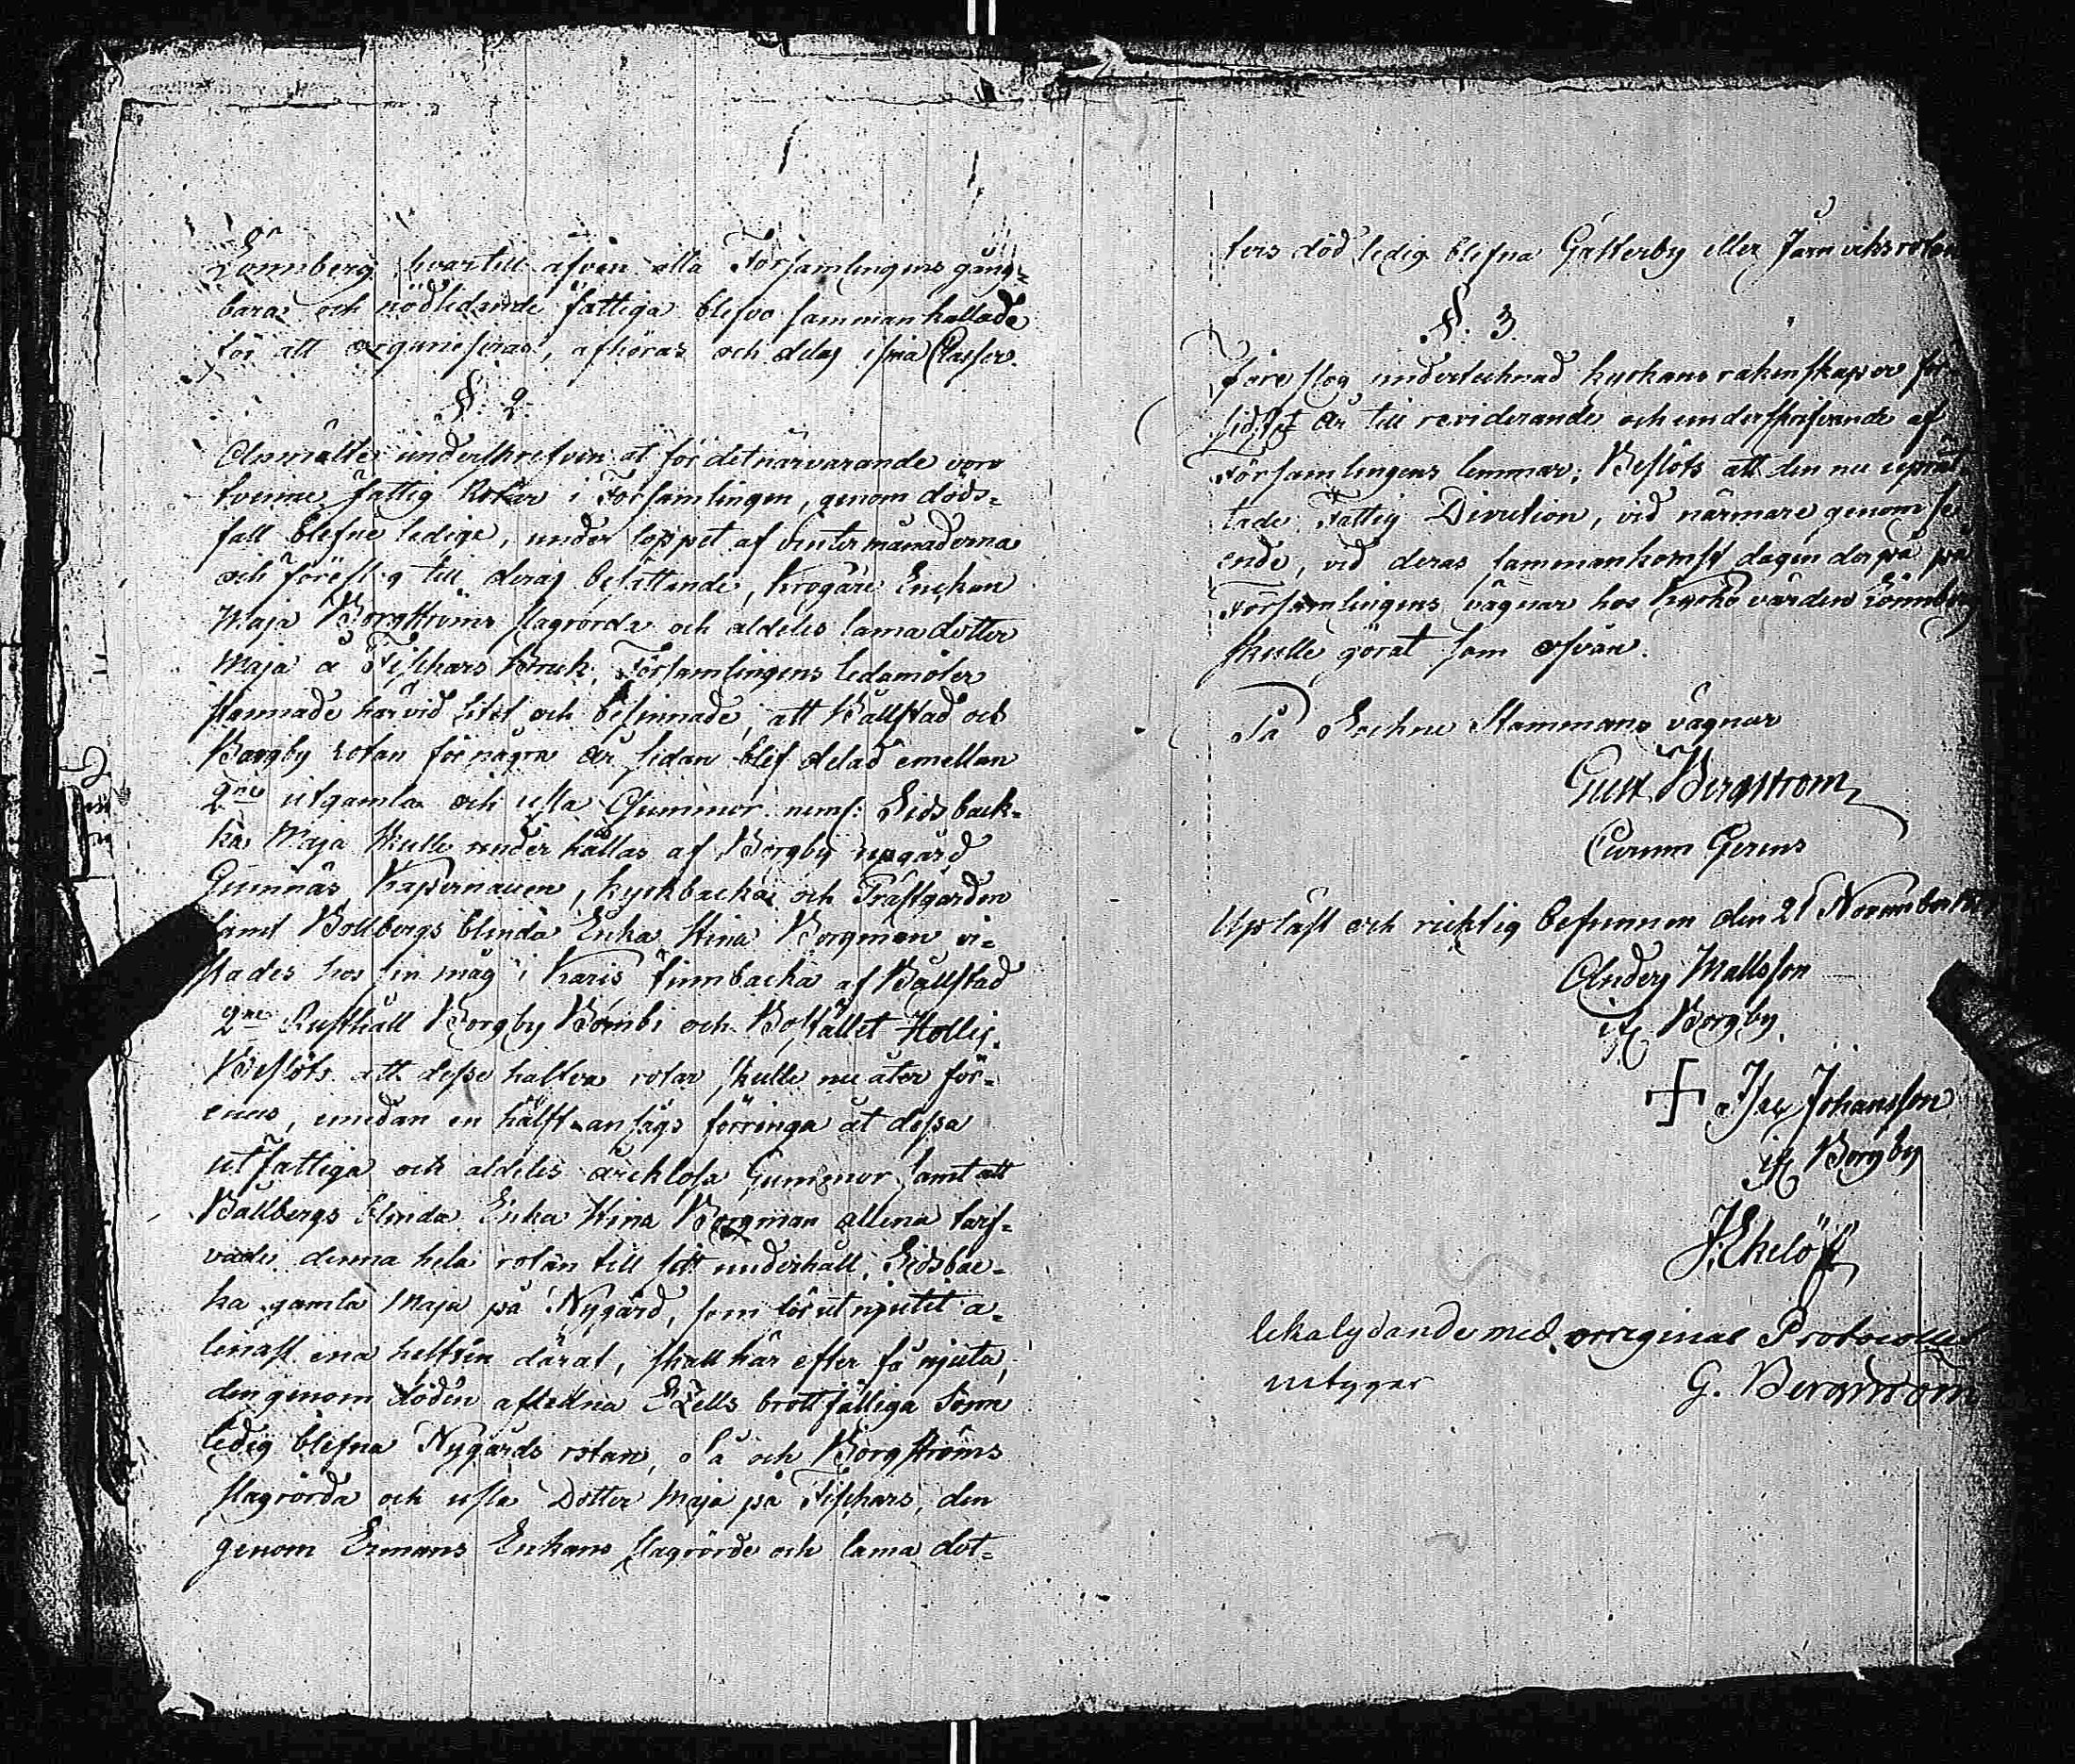 Lönnberg hvartill äfven alla Församlingens gång-
bara och nödlidande fattiga blefvo sammankallade
för att organiseras, afhöras och delas i sina Classer.
§. 2.
Anmälte underskrefven at för det närvarande voro
tvenne fattig Rotar i Församlingen, genom döds-
fall blefne ledige, under loppet af vintermånaderna
och föreslog till deras besättande, krögare Enckan
Maja Borgströms slagrörda och aldeles lama dotter
Maja å Fischars Bruk, Församlingens ledamöter
stannade härvid litet och besinnade, att Bällstad och
Borgby rotan för några år sedan blef delad emellan
2ne utgamla och usla Gummor neml: Lidsback-
ka Maja skulle underhållas af Borgby upgård
Gunnäs Kapernauen, Kyrkbacka och Prästgården
samt Bollbergs blinda Enka Stina Borgman vi-
stades hos sin måg i Karis Finnbacka af Bällstad
2ne Rusthåll Borgby Bombi och Bostället Hollis.
Beslöts att desse halfva rotar skulle nu åter för-
enas, emedan en hälft ansågs förringa åt dessa
utfattiga och aldeles arcklosa Gummor samt att
Bållbergs blinda Enka Stina Borgman allena tarf-
vade denna hela rotan till sitt underhåll, Lidsbac-
ka gamla Maja på Nygård, som förut njutit a-
lenast ena helften däraf, skall här efter få njuta,
den genom döden aflidna Ezells brottfälliga Sonn
ledig blefna Nygårds rotan, Så och Borgströms
slagrörda och usla Dotter Maja på Fischars, den
genom Enmans Enkans slagrörde och lama dot-
ters död ledig blefna Gätterby eller Järnviksrotan
§. 3.
Föreslog undertecknad kyrkans räkenskaper för
sidst år till reviderande och underskrifvande af
Församlingens lemmar; Beslöts att den nu uprät-
tade Fattig Direction, vid närmare genomse-
ende, vid deras sammankomst dagen derpå på
Församlingens vägnar hos Kyrko värden Lönnberg
skulle görat som ofvan.
På Sockne Stammans vägnar
Gust Bergstrom
Curam Gerens
Upläst och ricktig befunnen den 21 November
Anders Mattsson
ifr Borgby.
Isac Johansson
ifr Borgby
J. Ekelöf
Likalydande med orriginal Protocollet
intygar G. Bergstrom